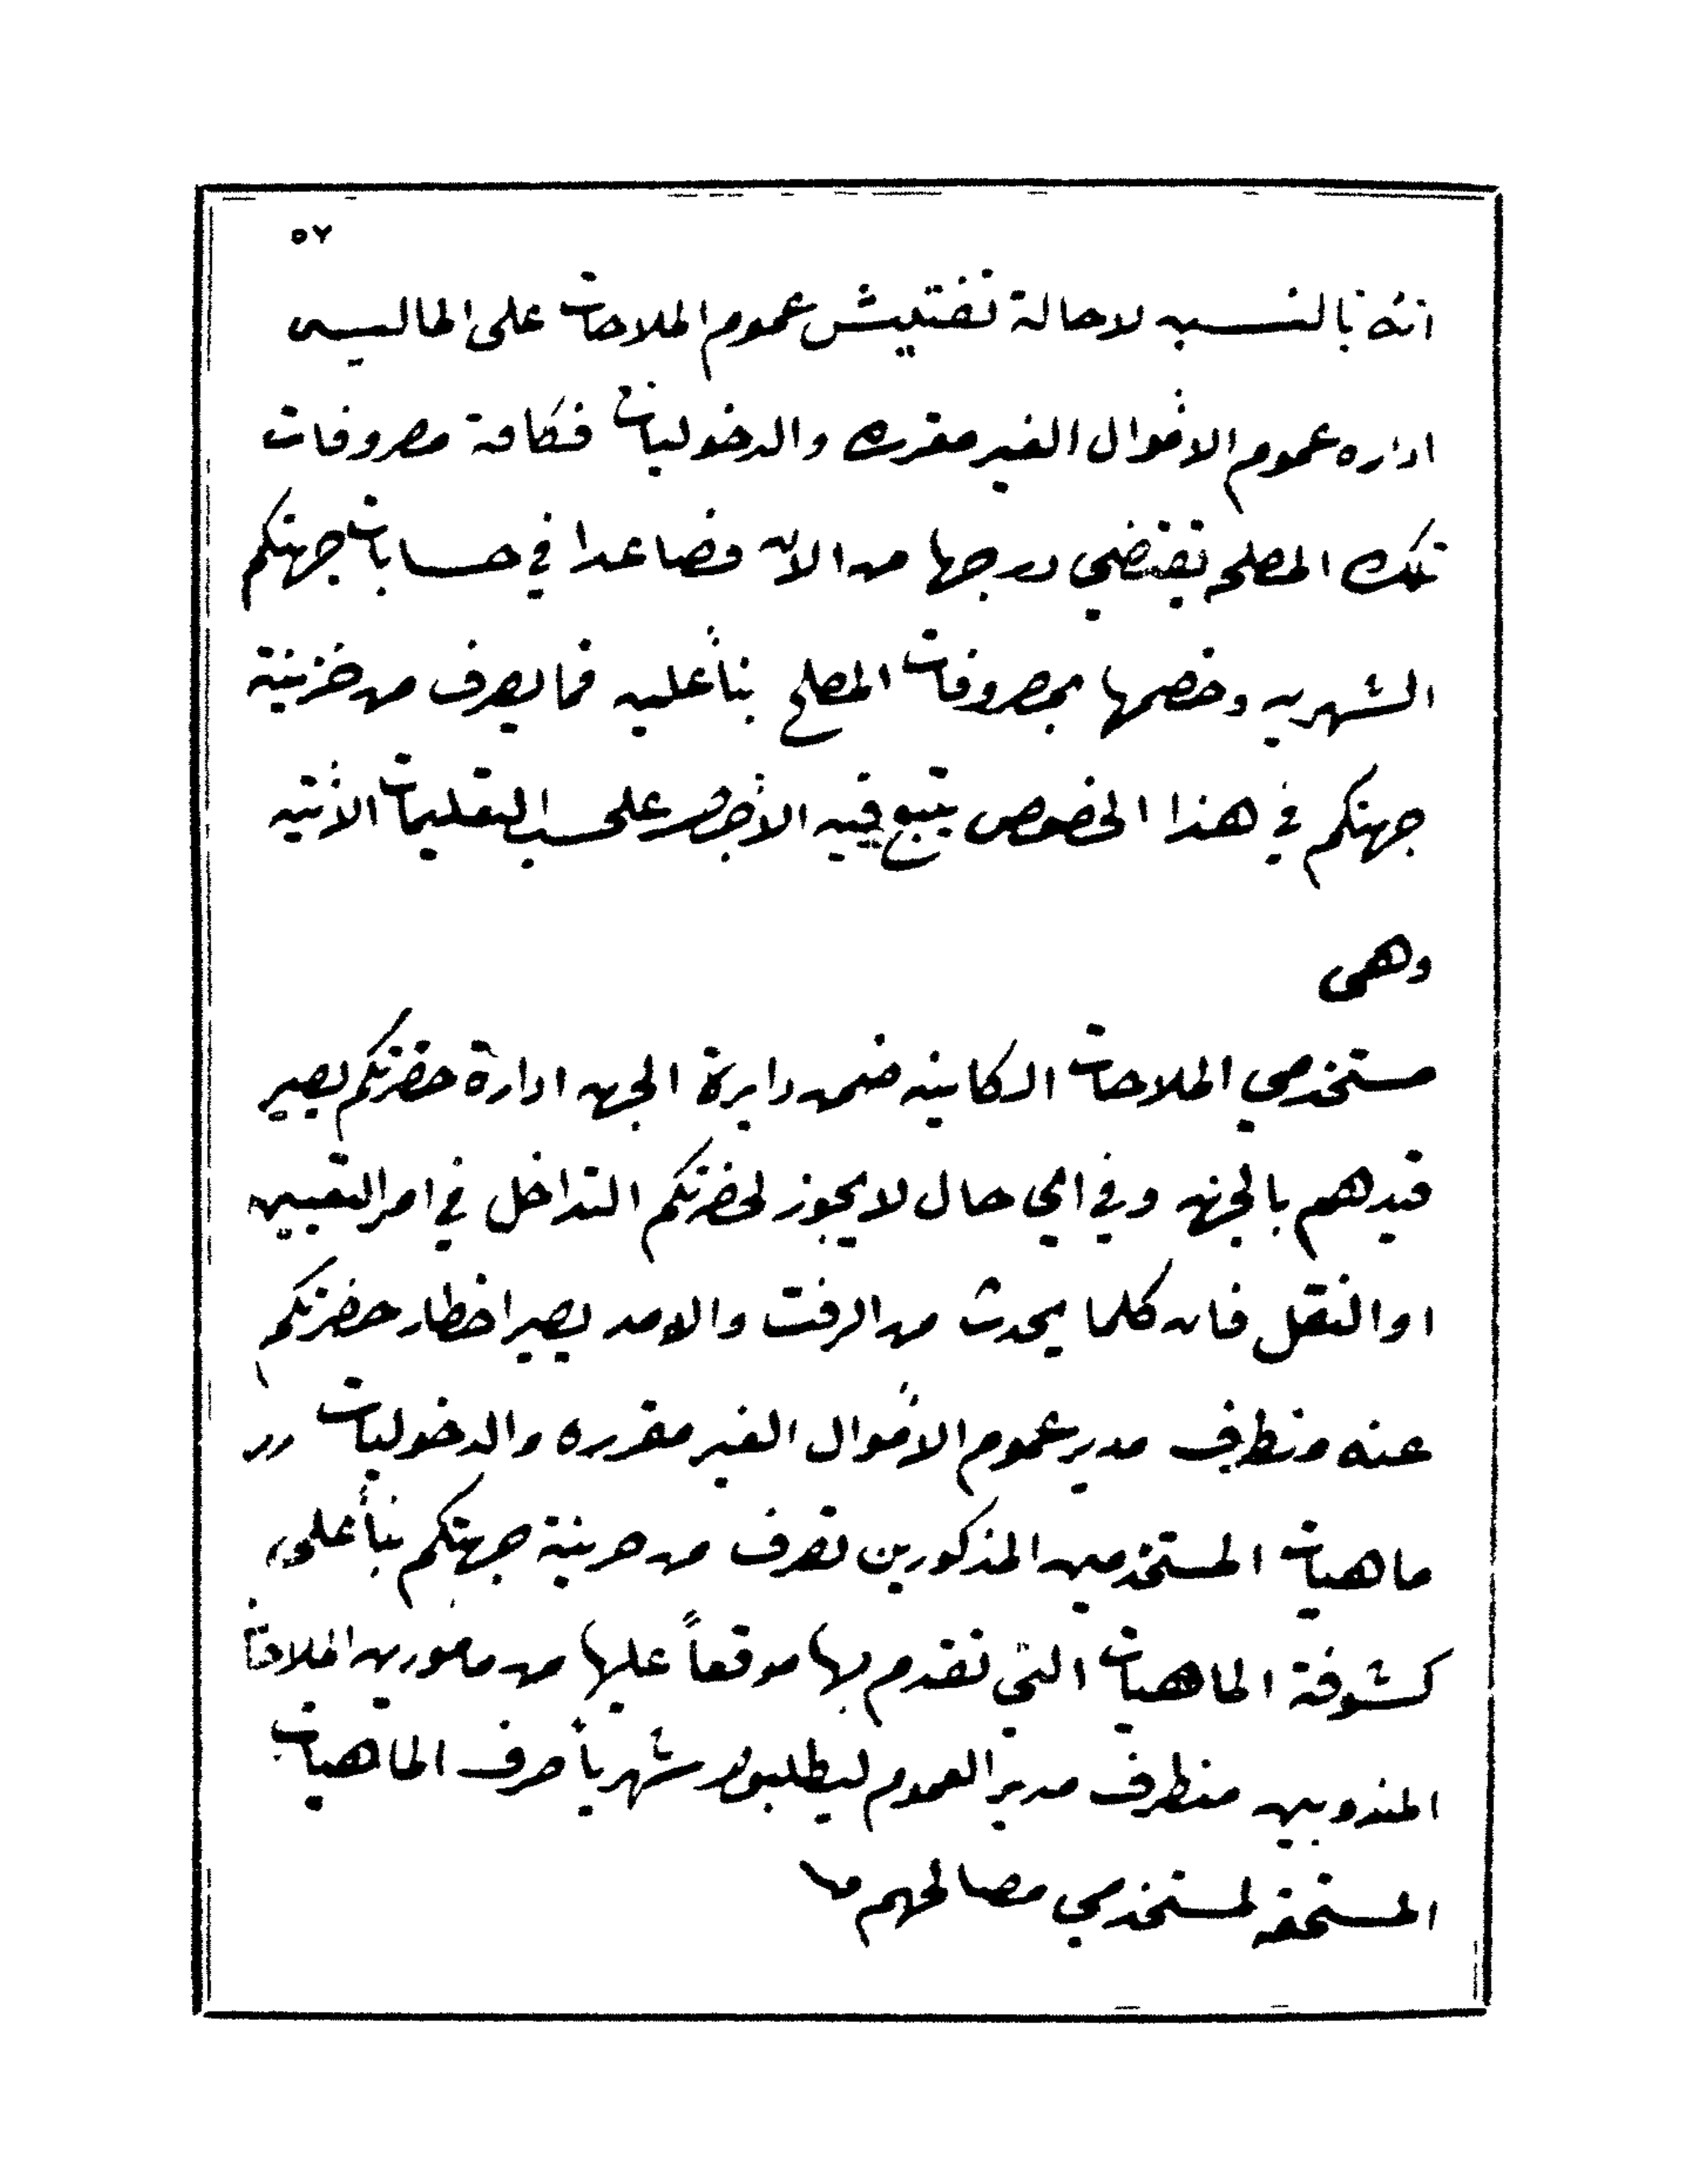 ٥٧
انه بالنسبه لاحالة تفتيش عموم الملاحات على الماليه
اداره عموم الاموال الغير مقرره والدخوليات فكافة مصروفات
تلك المصلحه تقتضي درجها من الان فصاعدا في حسابات جهتكم
الشهريه وخصمها بمصروفات المصلحه بناً عليه فما يصرف من خزينة
جهتكم في هذا الخصوص يتبع فيه الاجرا على حسب التعليمات الاتيه
وهى
مستخدمي الملاحات الكاينه ضمن دايرة الجهه ادارة حضرتكم يصير
قيدهم بالجهه وفي اي حال لا يجوز لحضرتكم التداخل في امر التعيين
او النقل فان كلما يحدث من الرفت والامد يصير اخطار حضرتكم
عنه منطرف مدير عموم الاموال الغير مقرره والدخوليات
ماهيات المستخدمين المذكورين تصرف من خزينة جهتكم بناً على
كشوفة الماهيات التي تقدم بها موقعاً عليها من مامورين الملاحات
المندوبين منطرف مدير العموم ليطلبوا شهرياً صرف الماهيات
المستحقه لمستخدمي مصالحهم